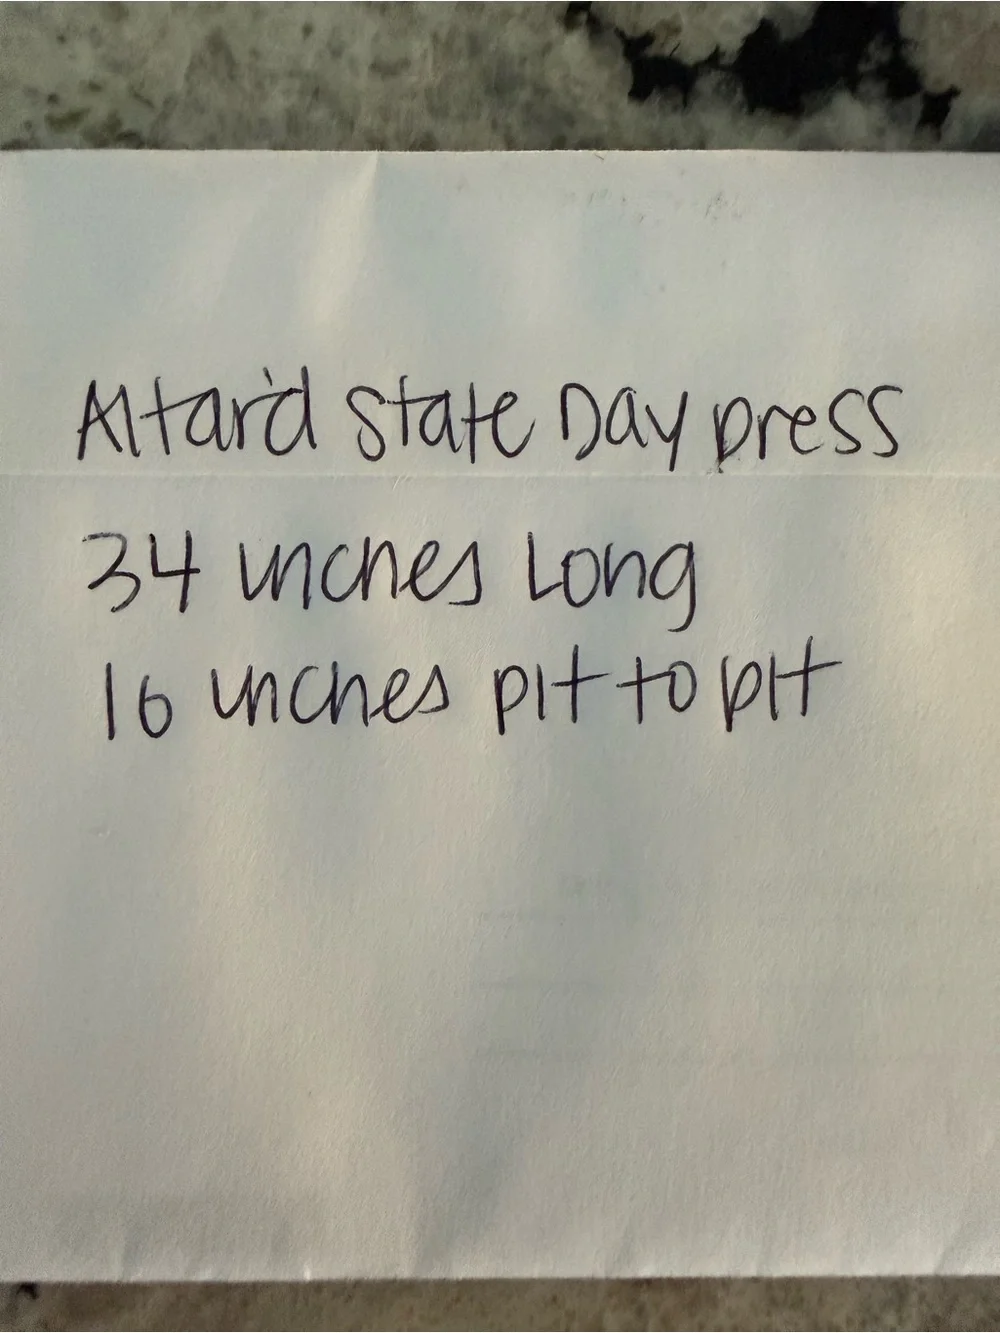 Altar'd State Day Dress
34 inches Long
16 inches pit to pit